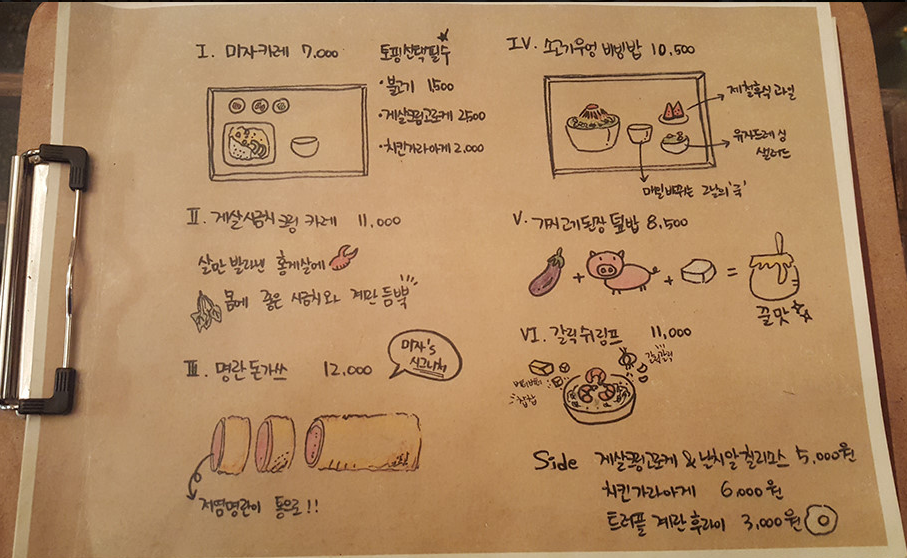 I. 미자카레 7,000
토핑선택필수
·불고기 1,500
·게살크림고로케 2,500
·치킨가라아게 2,000
II. 게살시금치크림 카레 11,000
살만 발라낸 홍게살에
몸에 좋은 시금치와 계란 듬뿍
III. 명란돈가쓰 12,000
미자's
시그니처
저염명란이 통으로!!
IV. 소고기우엉 비빔밥 10,500
제철후식 과일
유자드레싱
샐러드
매일바뀌는 그날의 '국'
V. 가지고기된장 덮밥 8,500
+ + =
꿀맛
VI. 갈릭쉬림프 11,000
버터버터
찹찹
갈릭갈릭
Side 게살크림고로케 & 난치알칠리소스 5,000원
치킨가라아게 6,000원
트러플 계란후라이 3,000원